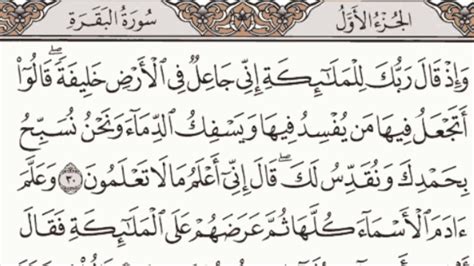 الجُزْءُ الأَوَّلُ سُورَةُ البَقَرَةِ
وَإِذْ قَالَ رَبُّكَ لِلْمَلَٰٓئِكَةِ إِنِّي جَاعِلٌ فِي ٱلْأَرْضِ خَلِيفَةً ۖ قَالُوٓا۟
أَتَجْعَلُ فِيهَا مَن يُفْسِدُ فِيهَا وَيَسْفِكُ ٱلدِّمَآءَ وَنَحْنُ نُسَبِّحُ
بِحَمْدِكَ وَنُقَدِّسُ لَكَ ۖ قَالَ إِنِّيٓ أَعْلَمُ مَا لَا تَعْلَمُونَ ٣٠ وَعَلَّمَ
ءَادَمَ ٱلْأَسْمَآءَ كُلَّهَا ثُمَّ عَرَضَهُمْ عَلَى ٱلْمَلَٰٓئِكَةِ فَقَالَ